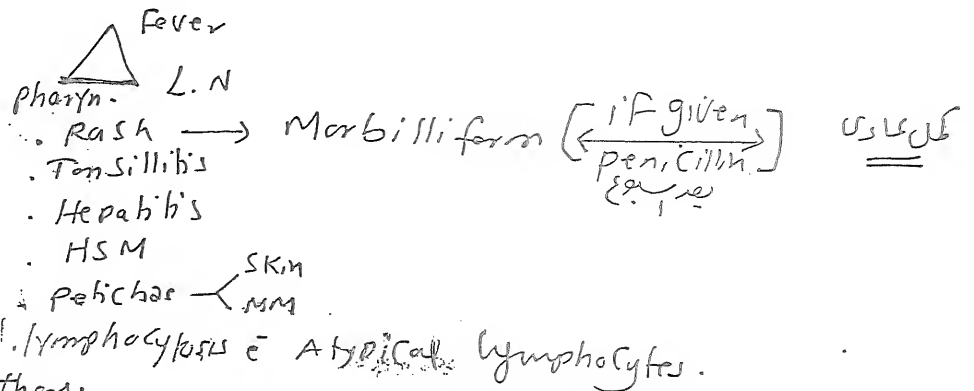 Fever
pharyn. L.N
. Rash → Morbilliform [if given penicillin]
بعد اسبوع
. Tonsillitis
. Hepatitis
. HSM
. Petichae < Skin
MM
. lymphocytosis ē Atypical lymphocytes.